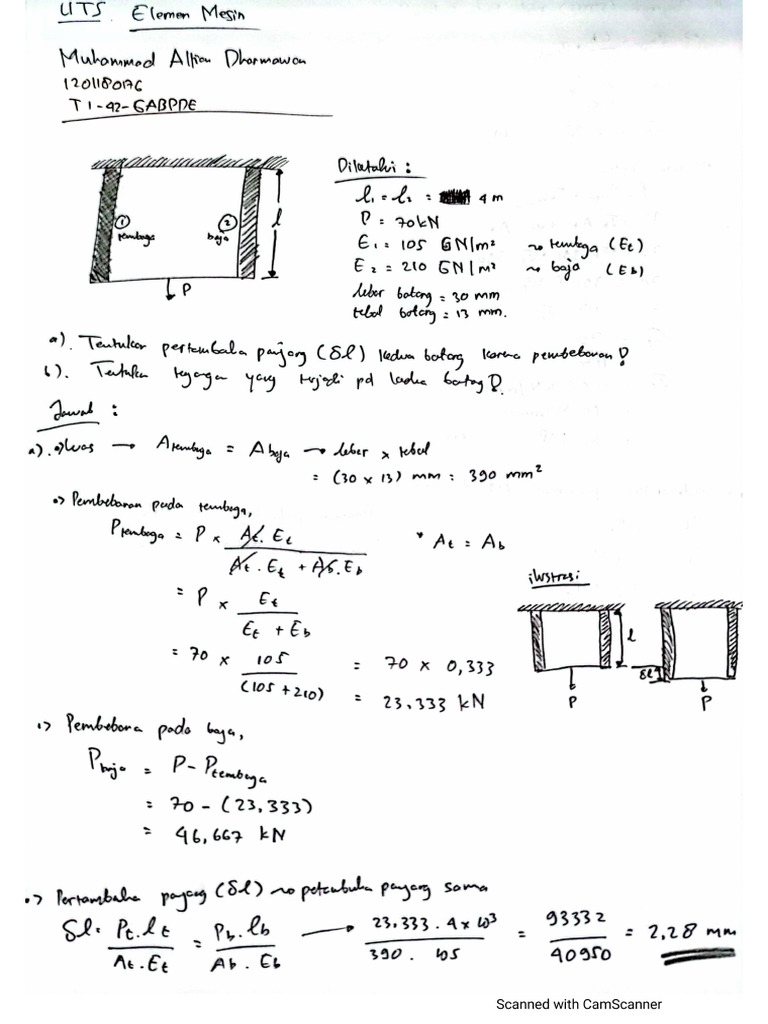 UTS. Elemen Mesin
Muhammad Alfian Dharmawan
1201180176
TI-42-GABPDE
Diketahui :
l₁ = l₂ = 4 m
P = 70 kN
E₁ = 105 GN/m² ~> tembaga (Et)
E₂ = 210 GN/m² ~> baja (Eb)
lebar batang = 30 mm
tebal batang = 13 mm.
① tembaga
② baja
l
P
a). Tentukan pertambahan panjang (δl) kedua batang karena pembebanan ?
b). Tentukan tegangan yang terjadi pd kedua batang ?
Jawab :
a). •) luas → A tembaga = A baja → lebar x tebal
= (30 x 13) mm = 390 mm²
•) Pembebanan pada tembaga,
P tembaga = P x At . Et / At . Et + Ab . Eb
* At = Ab
= P x Et / Et + Eb
= 70 x 105 / (105 + 210) = 70 x 0,333
= 23.333 kN
ilustrasi
l
δl
P
P
•) Pembebanan pada baja,
P baja = P - P tembaga
= 70 - (23,333)
= 46,667 kN
•) Pertambahan panjang (δl) ~> pertambahan panjang sama
δl = Pt . lt / At . Et = Pb . lb / Ab . Eb → 23.333 . 4 x 10³ / 390 . 105 = 93332 / 40950 = 2,28 mm
Scanned with CamScanner